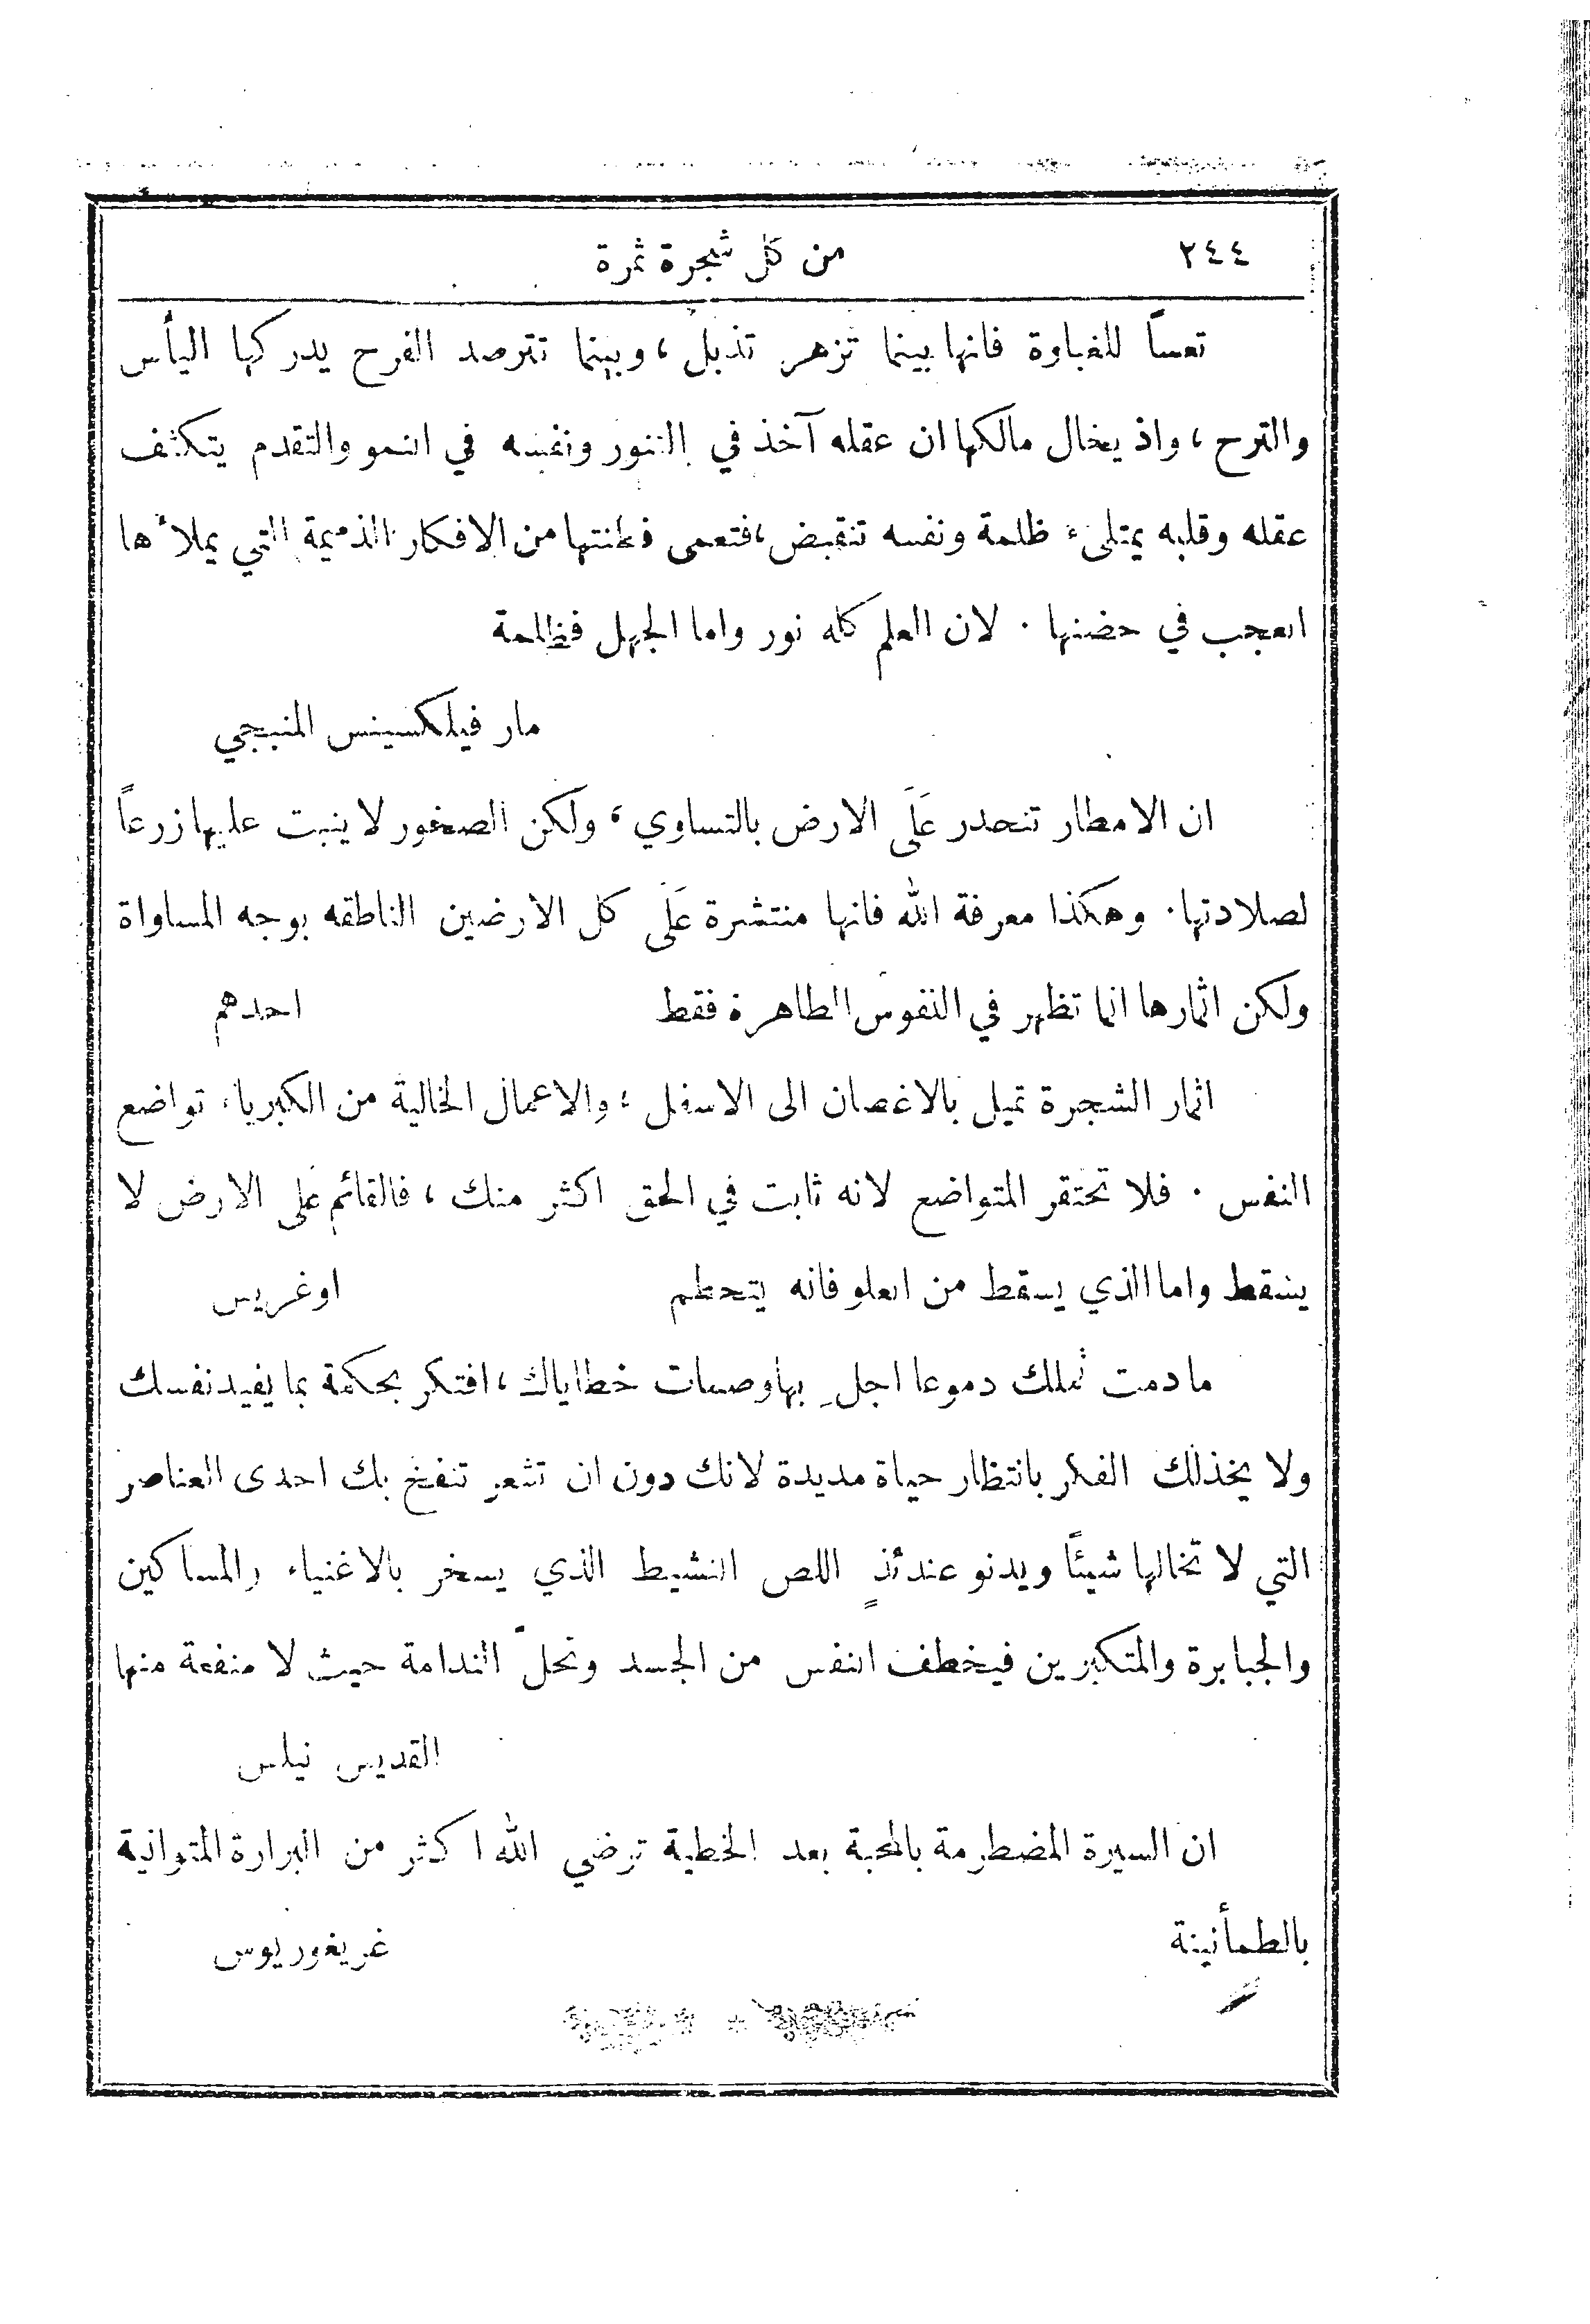 ٢٤٤
من كل شجرة ثمرة
تعساً للغباوة فانها بينما تزهر تذبل ، وبينما تترصد الفرح يدركها اليأس
والترح ، واذ يخال مالكها ان عقله آخذ في التنور ونفسه في النمو والتقدم يتكثف
عقله وقلبه يمتلىء ظلمة ونفسه تنقبض ، فتعمى فطنتها من الافكار الذميمة التي يملأها
العجب في حضنها . لان العلم كله نور واما الجهل فظلمة
مار فيلكسينس المنبجي
ان الامطار تنحدر عَلَى الارض بالتساوي ، ولكن الصخور لا ينبت عليها زرعاً
لصلادتها . وهكذا معرفة الله فانها منتشرة عَلَى كل الارضين الناطقه بوجه المساواة
ولكن اثمارها انما تظهر في النفوس الطاهرة فقط
احدهم
اثمار الشجرة تميل بالاغصان الى الاسفل ، والاعمال الخالية من الكبرياء تواضع
النفس . فلا تحتقر المتواضع لانه ثابت في الحق اكثر منك ، فالقائم على الارض لا
يسقط واما الذي يسقط من العلو فانه يتحطم
اوغريس
ما دمت تملك دموعا اجلِ بها وصمات خطاياك ، افتكر بحكمة بما يفيد نفسك
ولا يخذلك الفكر بانتظار حياة مديدة لانك دون ان تشعر تنفخ بك احدى العناصر
التي لا تخالها شيئاً ويدنو عندئذٍ اللص النشيط الذي يسخر بالاغنياء والمساكين
والجبابرة والمتكبرين فيخطف النفس من الجسد وتحلّ الندامة حيث لا منفعة منها
القديس نيلس
ان السيرة المضطرمة بالمحبة بعد الخطية ترضي الله اكثر من البرارة المتوانية
بالطمأنينة
غريغوريوس